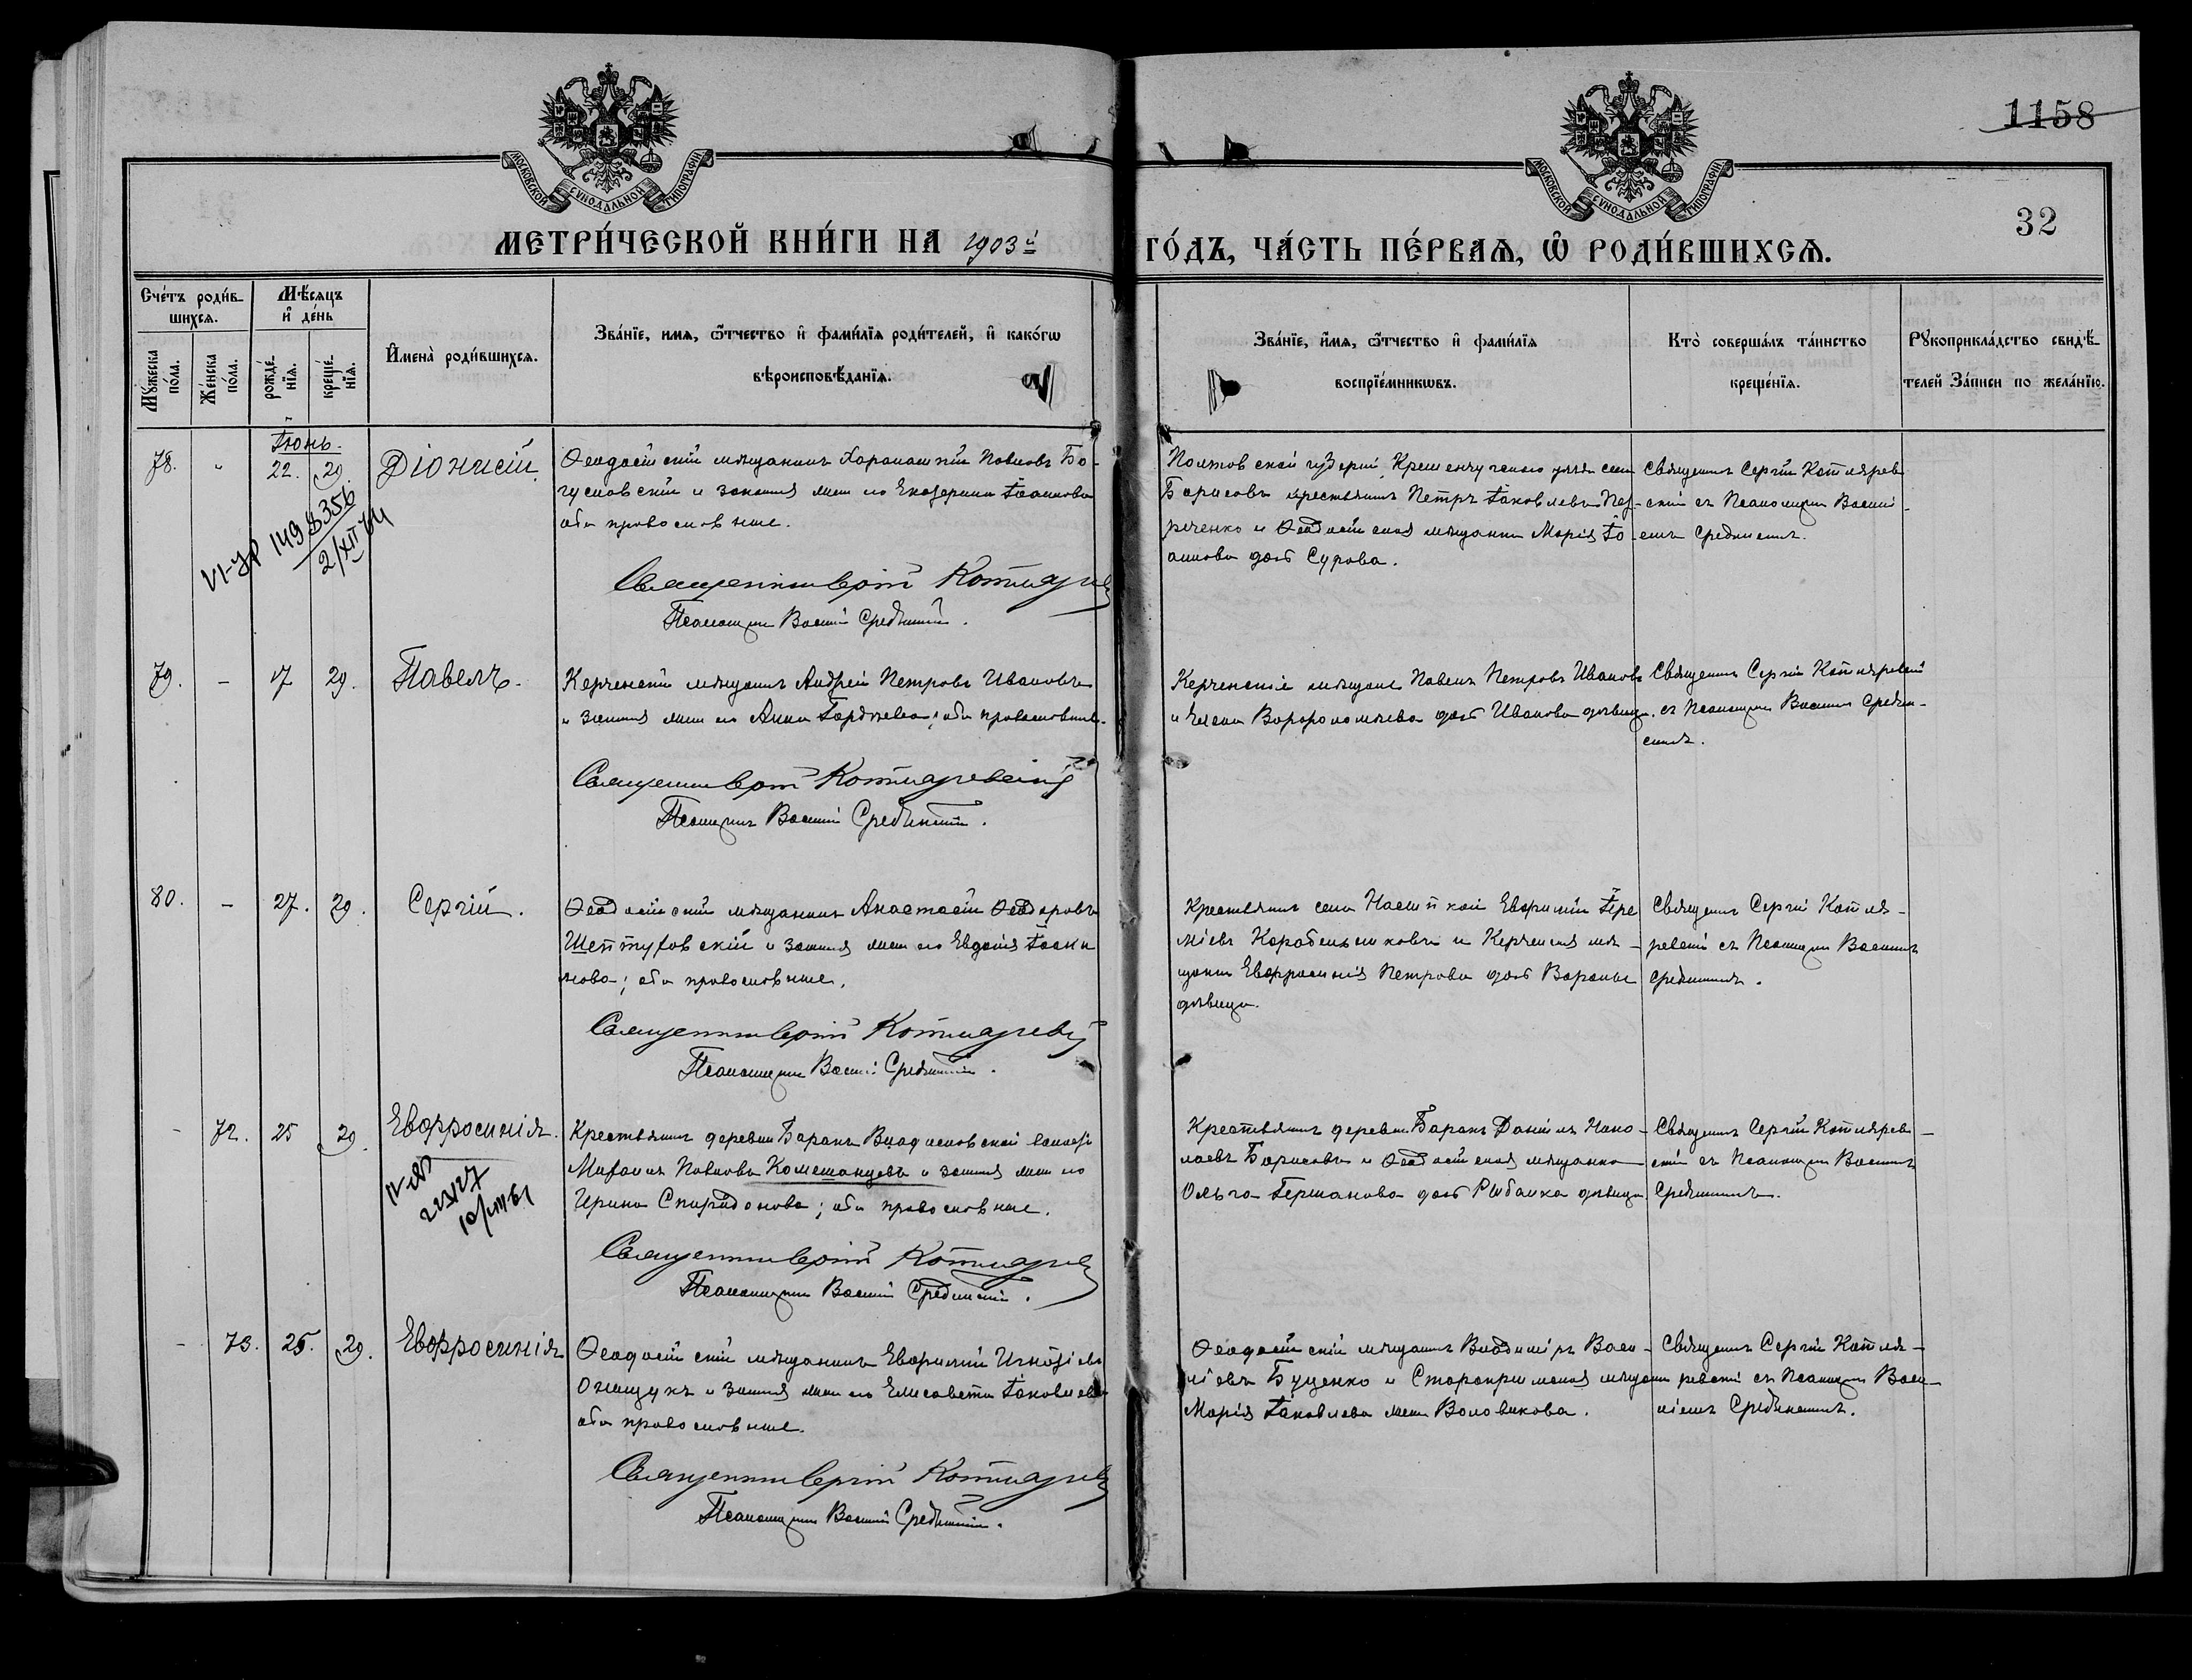 МОСКОВСКОЙ СУНОДАЛЬНОЙ ТИПОГРАФІИ
МОСКОВСКОЙ СУНОДАЛЬНОЙ ТИПОГРАФІИ
1158
32
МЕТРИ́ЧЕСКОЙ КНИ́ГИ НА 1903й
ГО́ДЪ, ЧА́СТЬ ПЕ́РВАѦ, Ѡ РОДИ́ВШИХСѦ.
Сче́тъ роди́в-
шихсѧ.
Мѣ́сѧцъ
и҆ де́нь
Мꙋ́жеска
по́ла.
Же́нска
по́ла.
рожде́-
нїѧ.
креще́-
нїѧ.
И҆мена̀ роди́вшихсѧ.
Зва́нїе, имѧ, ѻ҆́тчество и҆ фами́лїѧ роди́телей, и҆ како́гѡ
вѣроисповѣ́данїѧ.
Зва́нїе, и҆́мѧ, ѻ҆́тчество и҆ фами́лїѧ
воспрїе́мникѡвъ.
Кто̀ соверша́лъ та́инство
креще́нїѧ.
Рꙋкоприкла́дство свидѣ́-
телей За́писи по жела́нїю.
Іюнь.
78. " 22. 29. Діонисій.
Ѳеодосійскій мѣщанинъ Харлампій Павловъ Бо-
гуславскій и законная жена его Екатерина Іоаннова
оба православные.
Священникъ Сергій Котляревскій
Псаломщикъ Василій Срединскій.
Полтавской губерніи, Кременчугскаго уѣзда села
Борисовъ крестьянинъ Петръ Іаковлевъ
и Ѳеодосійская мѣщанка Марія Іо-
аннова дочь Сурова.
Священникъ Сергій Котлярев-
скій съ Псаломщикомъ Васили-
емъ Срединскимъ.
VI-УР 1498356
2/XII 74
79. - 17 29. Павелъ.
Керченскій мѣщанинъ Андрей Петровъ Ивановъ
и законная жена его Анна Гордѣева; оба православные.
Священникъ Сергій Котляревскій
Псаломщикъ Василій Срединскій.
Керченскіе мѣщане Павелъ Петровъ Ивановъ
и Елена Варфоломѣева дочь Иванова дѣвица.
Священникъ Сергій Котляревскій
съ Псаломщикомъ Василіемъ Средин-
скимъ.
80. - 27. 29. Сергій.
Ѳеодосійскій мѣщанинъ Анастасій Ѳеодоровъ
Шептуховскій и законная жена его Евдокія Іоаки
мова; оба православные.
Священникъ Сергій Котляревскій
Псаломщикъ Василій Срединскій.
Крестьянинъ села Насыпкой Евфимій Іере
міевъ Коробельниковъ и Керченская мѣ-
щанка Евфросинія Петрова дочь
дѣвица.
Священникъ Сергій Котля-
ревскій съ Псаломщикомъ Василіемъ
Срединскимъ.
- 72. 25 29. Евфросинія.
Крестьянинъ деревни Баракъ Владиславской волости
Михаилъ Павловъ Комешанцевъ и законная жена его
Ирина Спиридонова; оба православные.
Священникъ Сергій Котляревскій
Псаломщикъ Василій Срединскій.
Крестьянинъ деревни Баракъ Даніилъ Нико-
лаевъ Борисовъ и Ѳеодосійская мѣщанка
Ольга Германова дочь Рыбалка дѣвица.
Священникъ Сергій Котлярев-
скій съ Псаломщикомъ Василіемъ
Срединскимъ.
- 73. 25. 29. Евфросинія
Ѳеодосійскій мѣщанинъ Евфимій Игнатіевъ
Онищукъ и законная жена его Елисавета Іаковлева
оба православные.
Священникъ Сергій Котляревскій
Псаломщикъ Василій Срединскій.
Ѳеодосійскій мѣщанинъ Владиміръ Васи-
ліевъ Буценко и Старокрымская мѣщанка
Марія Іаковлева жена Воловикова.
Священникъ Сергій Котля-
ревскій съ Псаломщикомъ Васи-
ліемъ Срединскимъ.